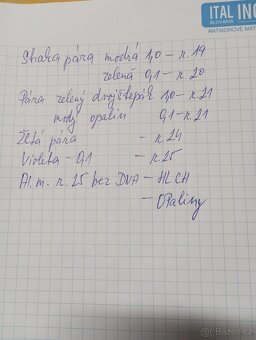 ITAL INO
SLOVAKIA
ANTIKOROVÉ MAT
Straka pára modrá 1,0 - r. 19
zelená 0,1 - r. 20
Pára zelený dvojštepák 1,0 - r. 21
modrý opalin 0,1 - r. 21
Žltá pára - r. 24
Violeta - 0,1 - r. 25
Al. m. r. 25 bez DNA - HL CH
- OPaliny
bazos.cz